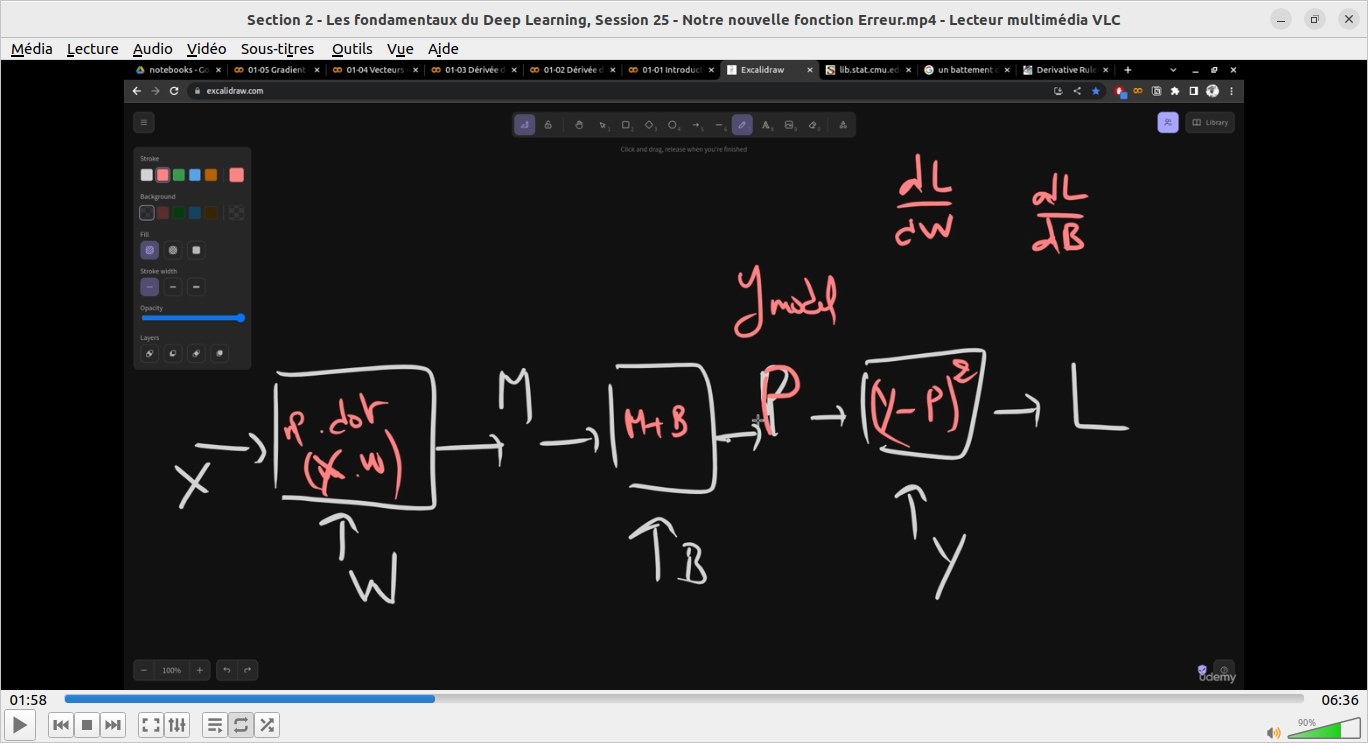 Section 2 - Les fondamentaux du Deep Learning, Session 25 - Notre nouvelle fonction Erreur.mp4 - Lecteur multimédia VLC
Média Lecture Audio Vidéo Sous-titres Outils Vue Aide
notebooks - Go 01-05 Gradient 01-04 Vecteurs 01-03 Dérivée d 01-02 Dérivée d 01-01 Introduct Excalidraw lib.stat.cmu.ed un battement d Derivative Rule
excalidraw.com
Library
Click and drag, release when you're finished
Stroke
Background
Fill
Stroke width
Opacity
Layers
dL
dW
dL
dB
y model
X
np.dot
(X.W)
W
M
M+B
B
P
(Y-P)²
Y
L
100%
udemy
01:58
06:36
90%